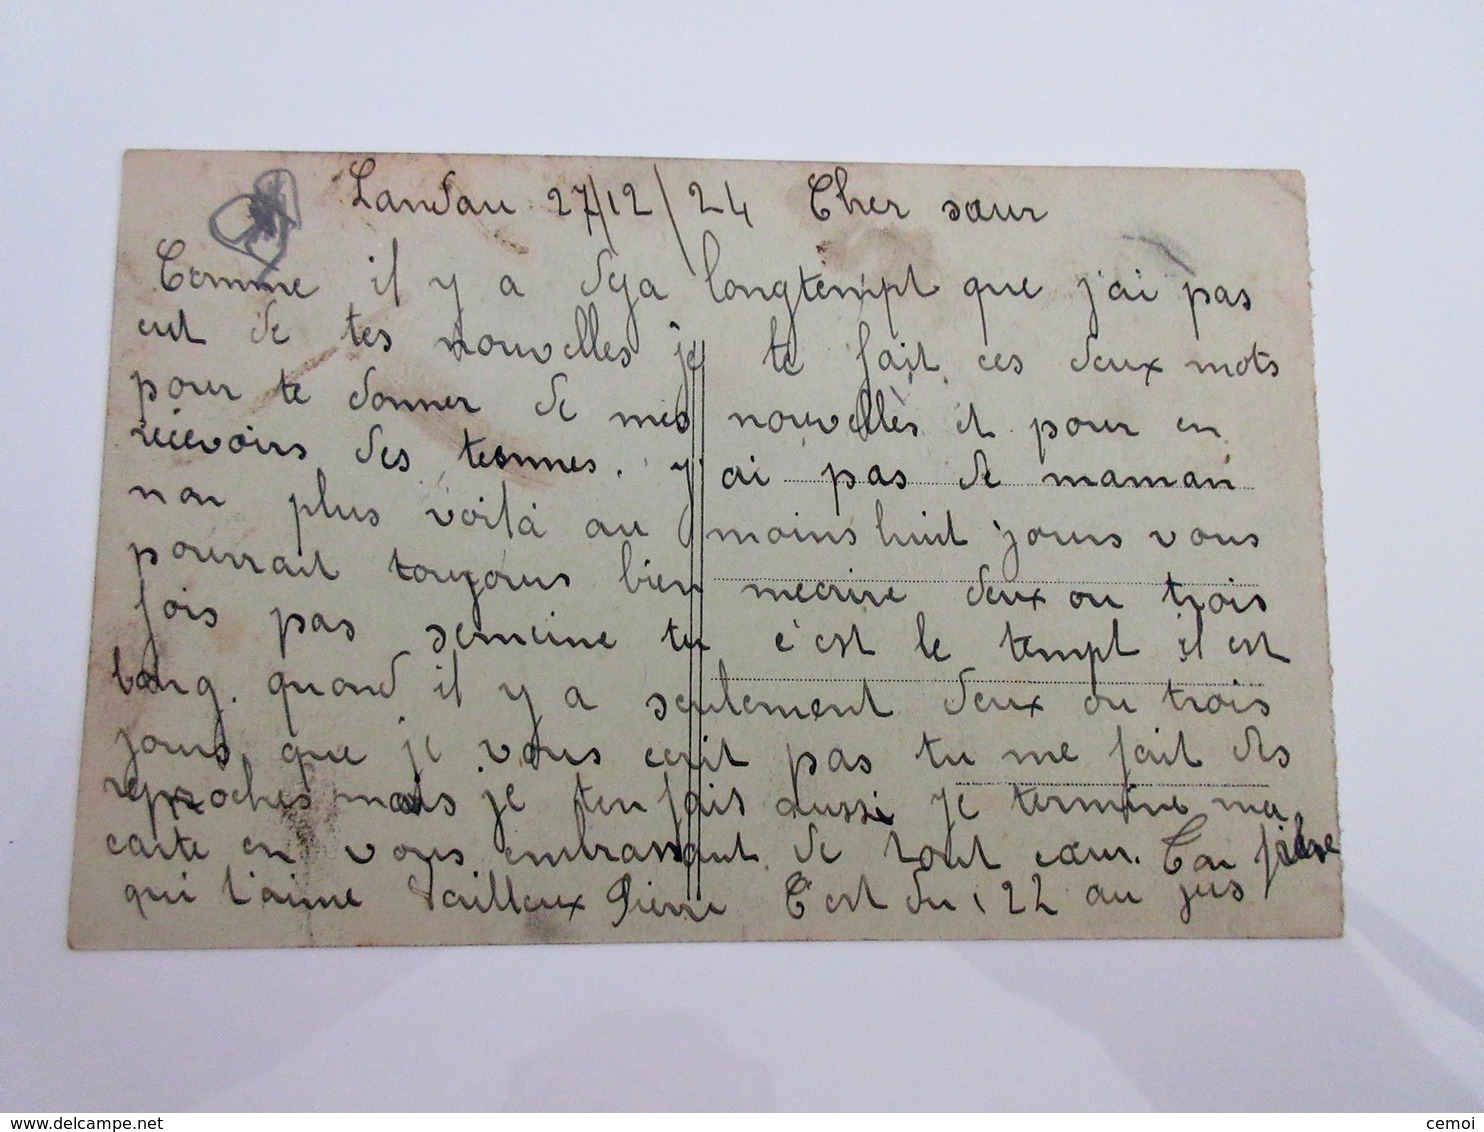 Landau 27/12/24 Cher sœur
Comme il y a deja longtempt que j'ai pas
eut de tes nouvelles je te fait ces deux mots
pour te donner de mes nouvellès et pour en
récevoirs des tennes. j'ai pas de maman
non plus voilà au moins huit jours vous
pourrait toujours bien mecrire deux ou trois
fois pas semeine tu c'est le tempt il est
long. quand il y a seulement deux ou trois
jours que je vous ecrit pas tu me fait des
reproches mais je ten fais aussi je termine ma
carte en vous embrassant de tout cœur. Ton frère
qui t'aime Tailleux Pierre C'est du 122 au jus
delcampe.net
cemoi